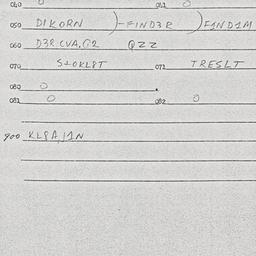 060 0 0
050 DIKORN )-FIND3R )F1ND1M
060 D3R.CVA,G2 QZZ
070 S+OKL8T 071 TRESLT
080 0
081 0 082 0
900 KL8A,J1N